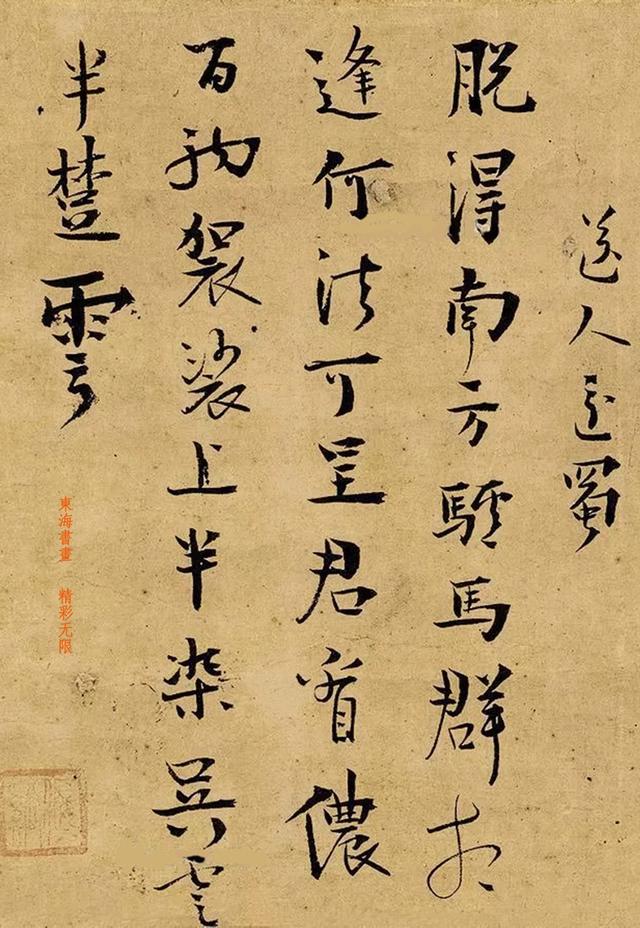 送人還蜀
脱得南方驢馬群相
逢何法可呈君看儂
百衲袈裟上半染吴雲
半楚雲
東海書畫 精彩无限